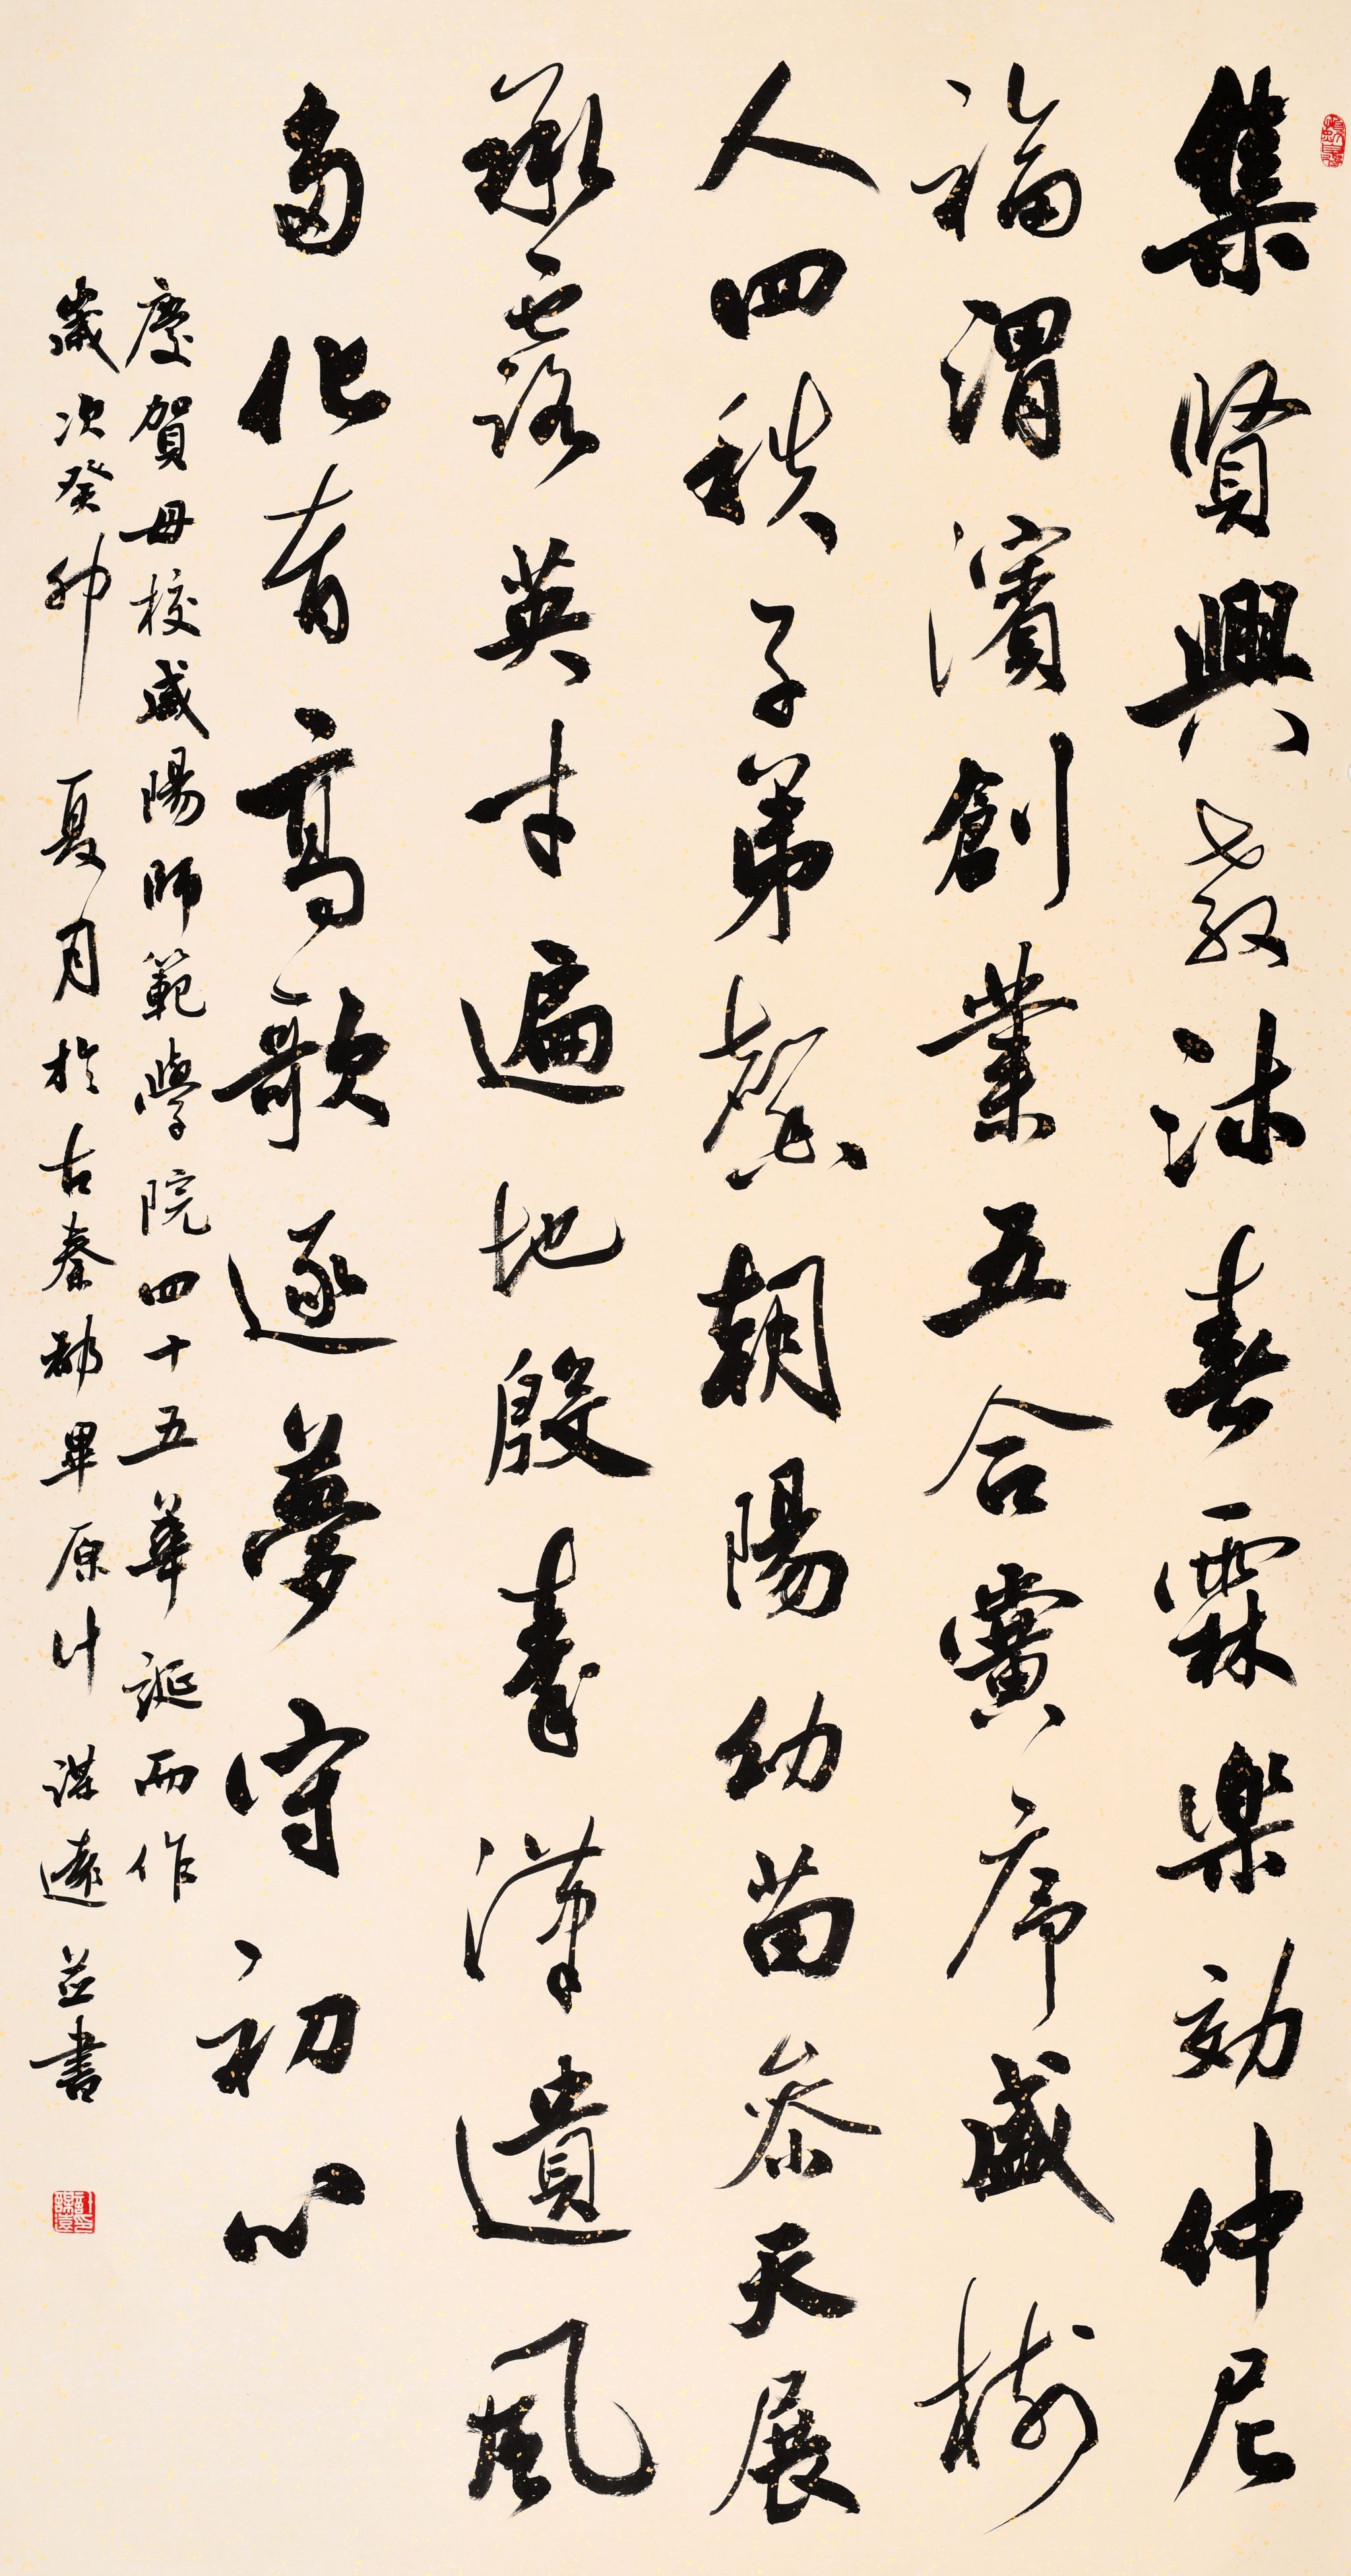 集賢興教沐春霖樂効仲尼
福渭濱創業五合黌序盛樹
人四秩子弟馨朝陽幼苗參天展
承露英才遍地殷秦漢遺風
多化育高歌逐夢守初心
慶賀母校咸陽師範學院四十五華誕而作
歲次癸卯夏月於古秦都畢原計謀遠並書